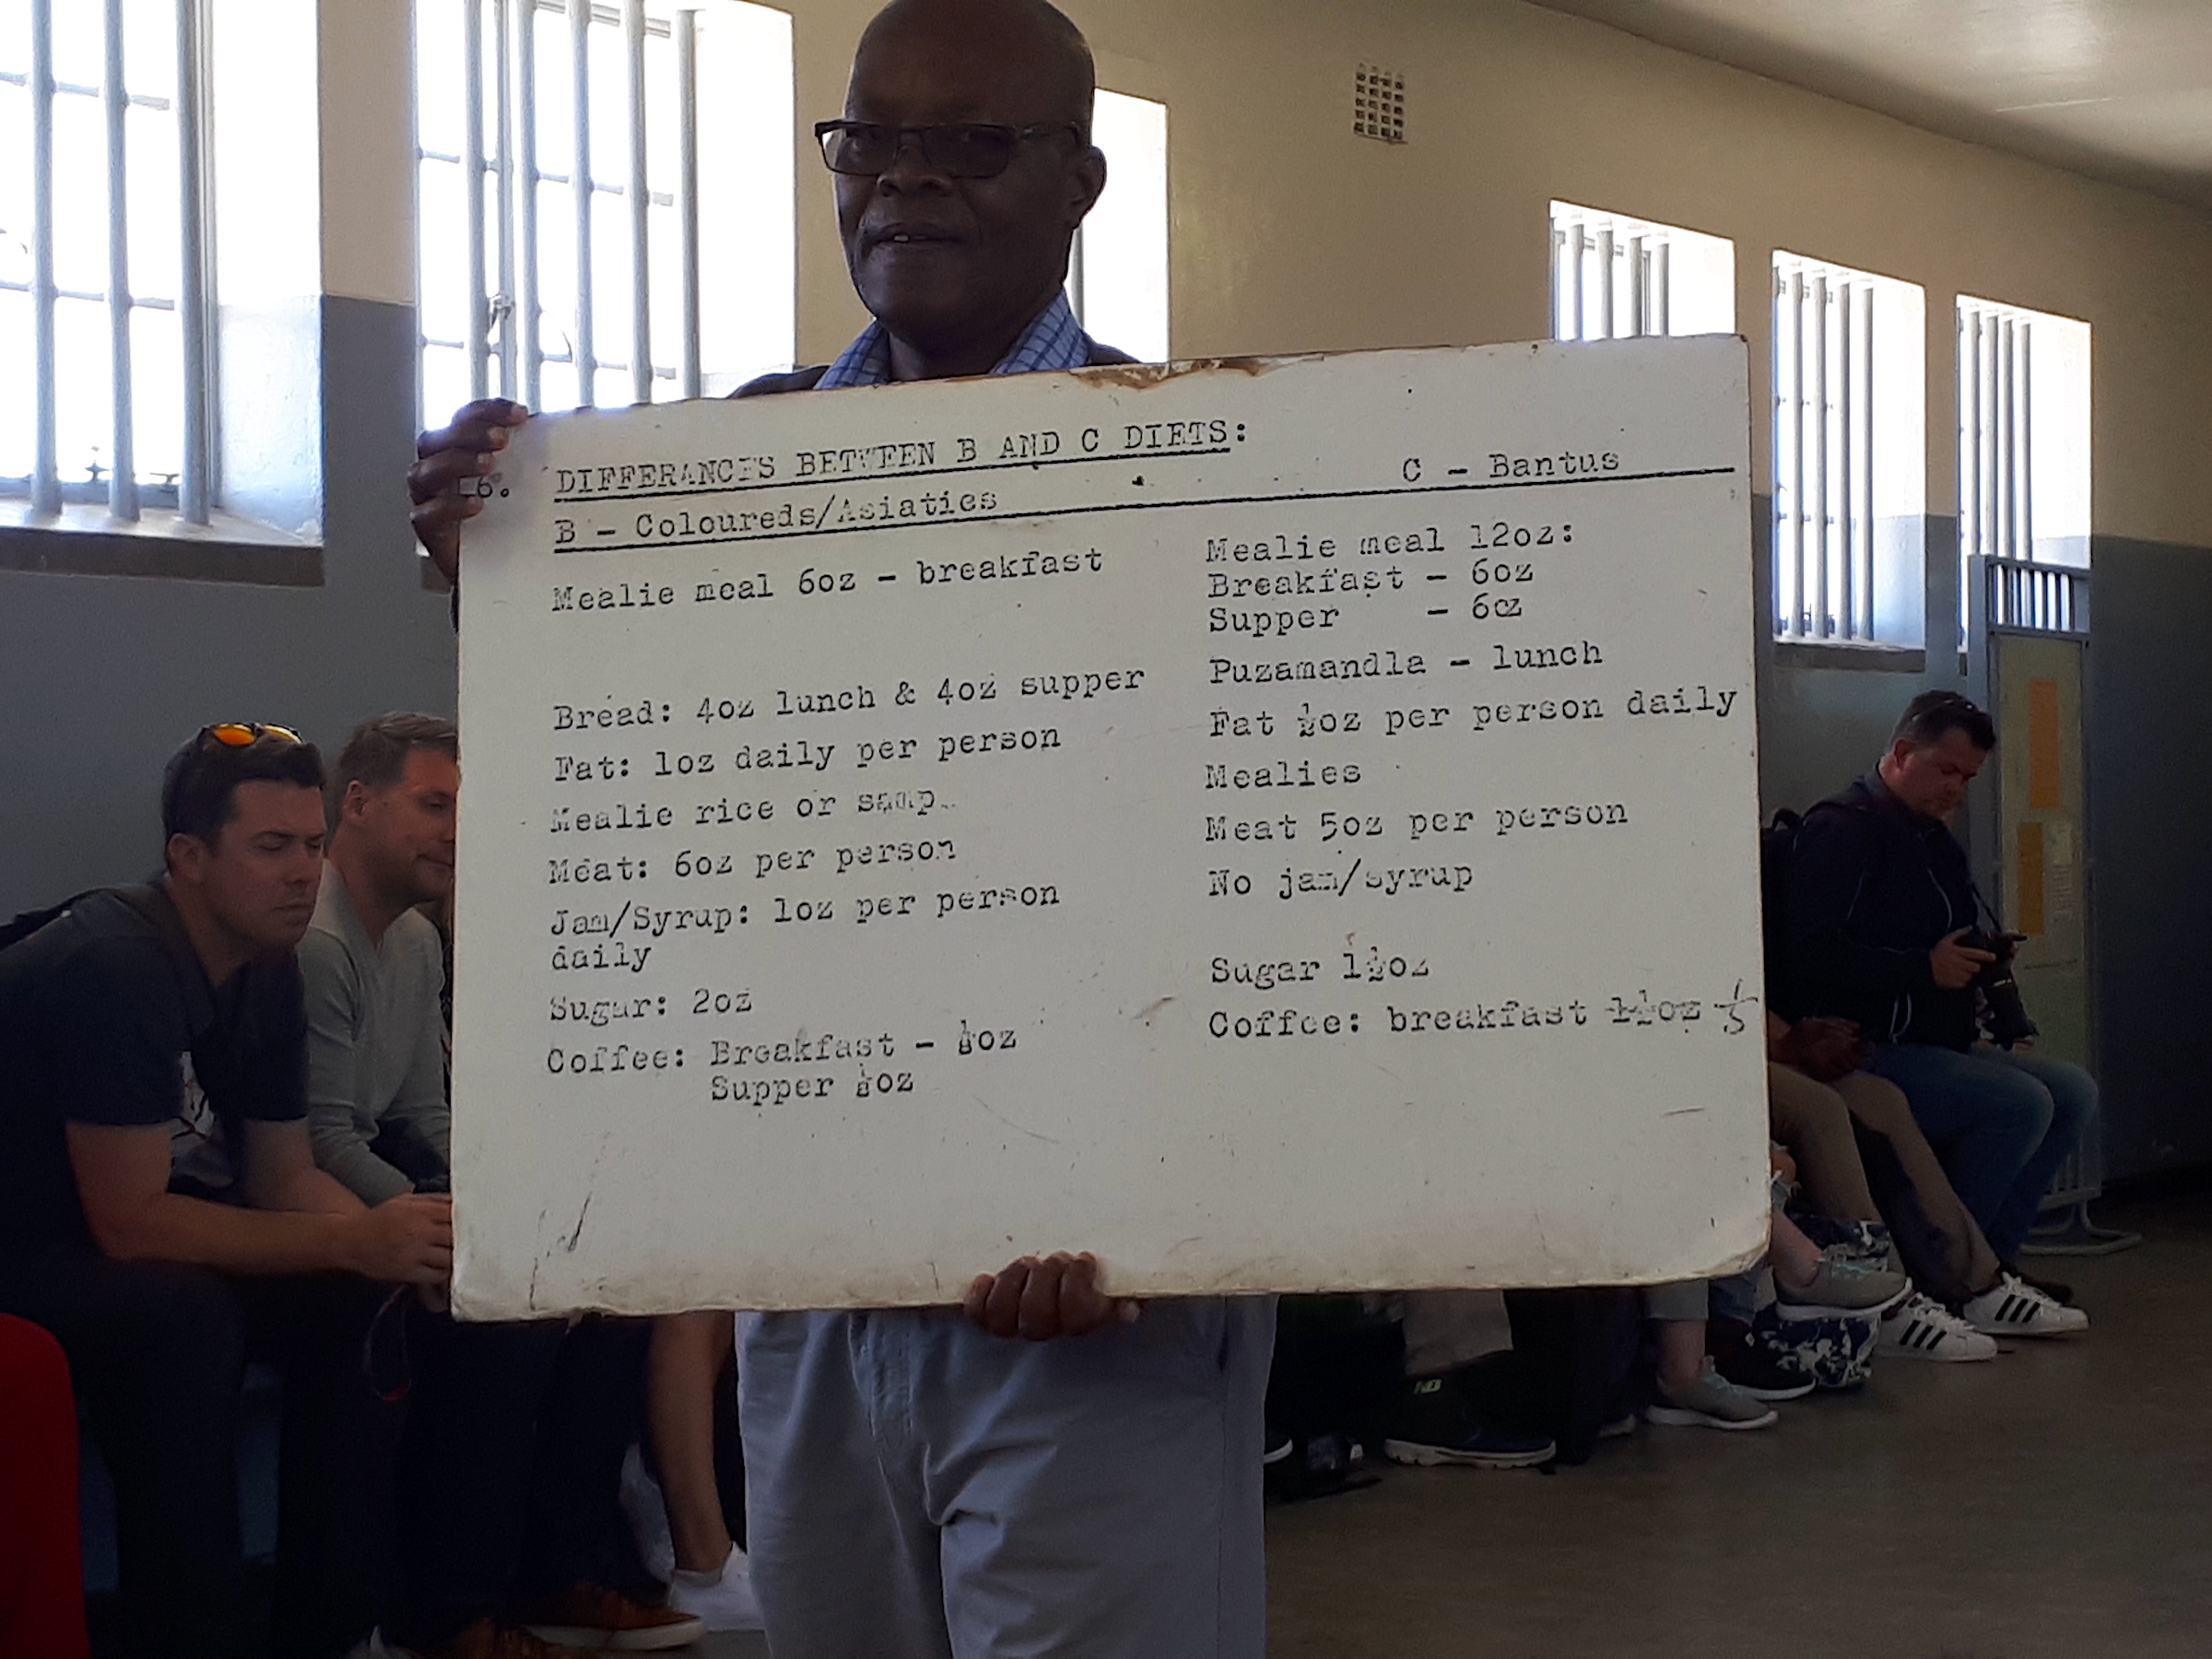 6. DIFFERANCES BETWEEN B AND C DIETS:
B - Coloureds/Asiatics
C - Bantus
Mealie meal 6oz - breakfast
Bread: 4oz lunch & 4oz supper
Fat: 1oz daily per person
Mealie rice or samp.
Meat: 6oz per person
Jam/Syrup: 1oz per person
daily
Sugar: 2oz
Coffee: Breakfast - oz
Supper oz
Mealie meal 12oz:
Breakfast - 6oz
Supper - 6oz
Puzamandla - lunch
Fat ½oz per person daily
Mealies
Meat 5oz per person
No jam/syrup
Sugar 1½oz
Coffee: breakfast